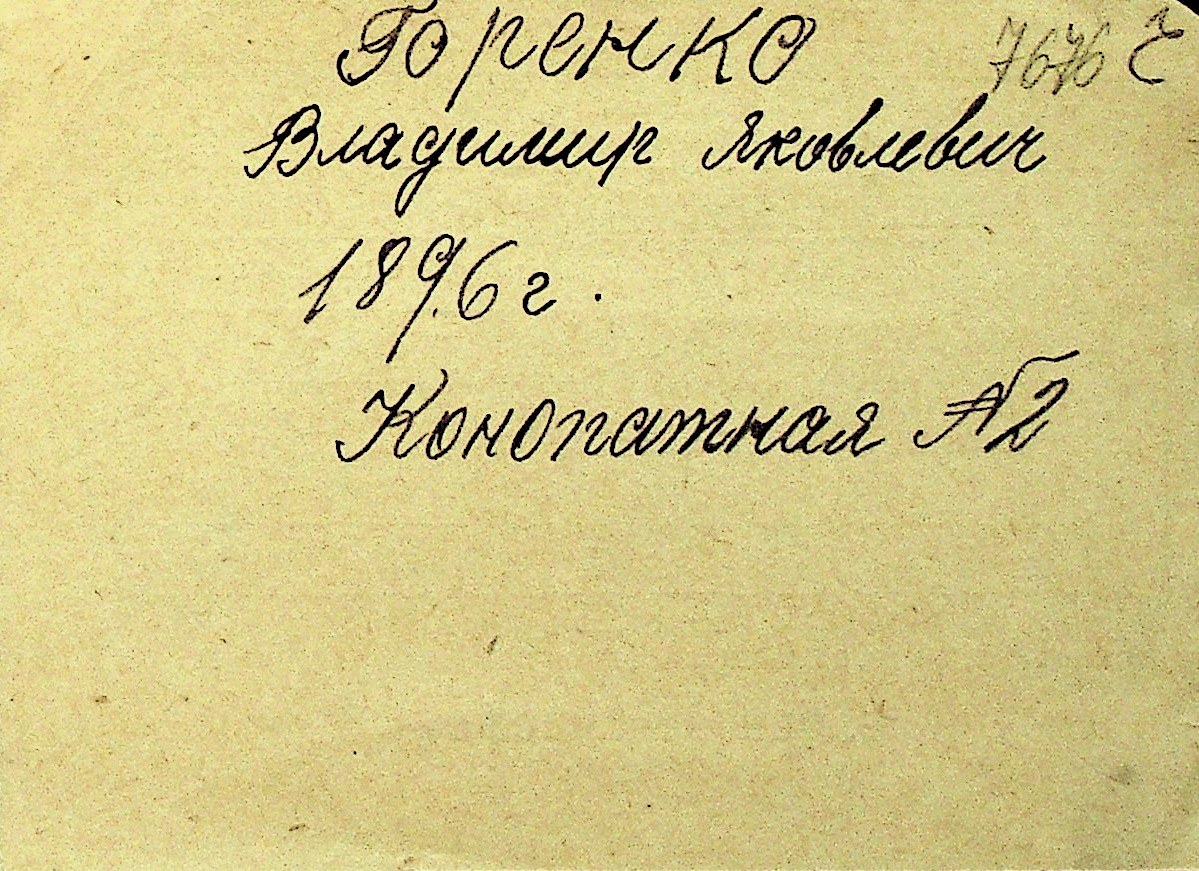 Горенко 7676
Владимир Яковлевич
1896 г.
Конопатная №2